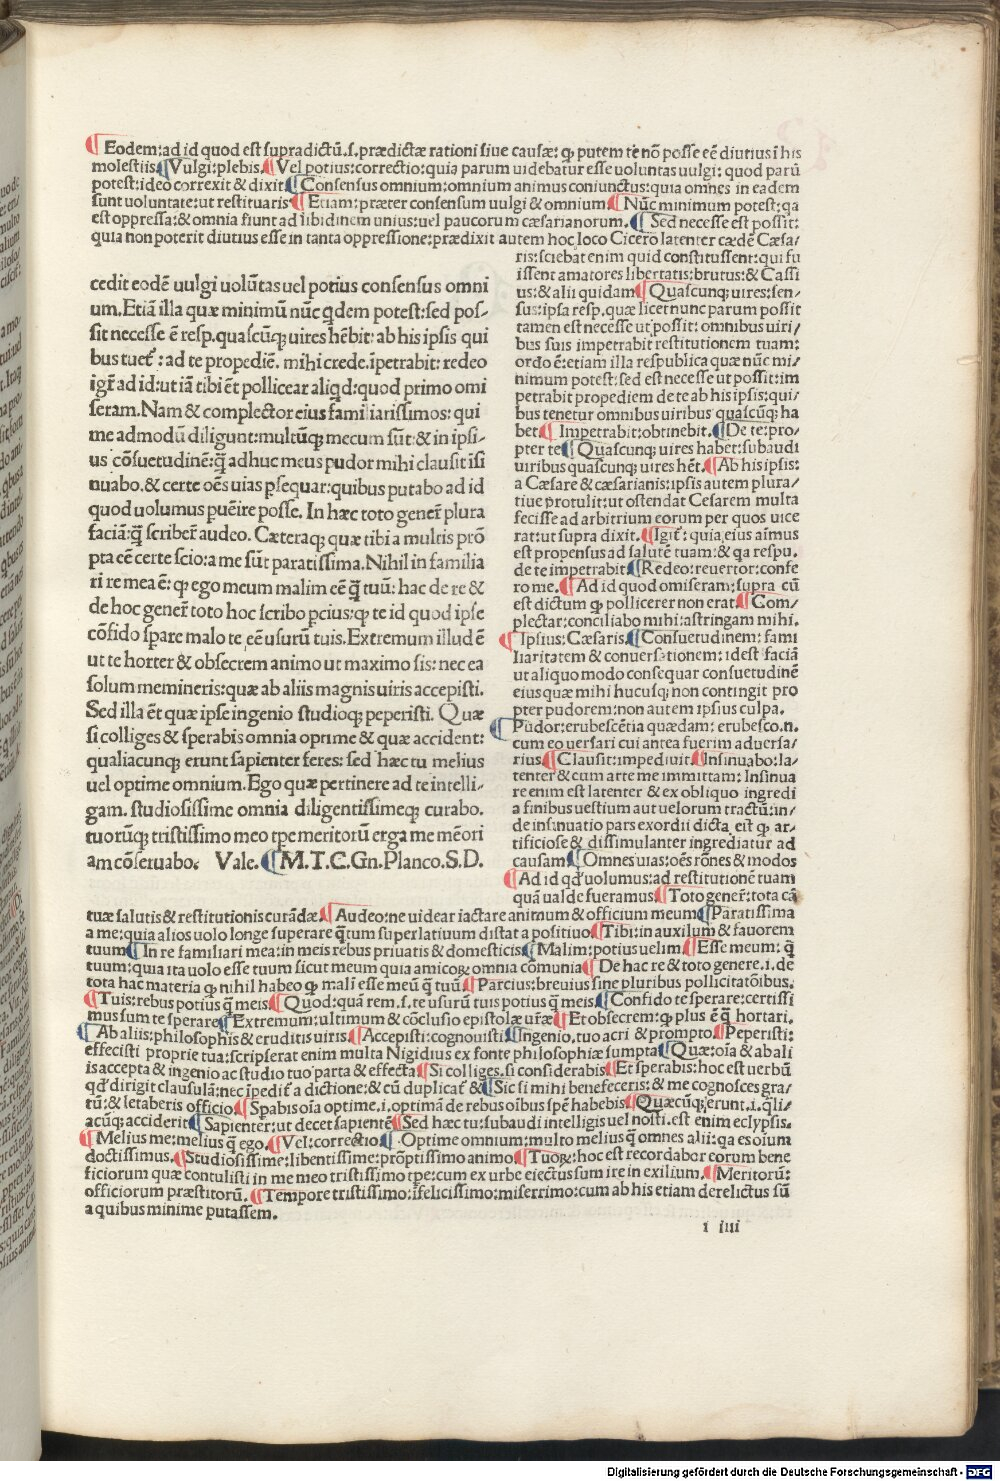 ¶ Eodem:ad id quod est supradictū.s.prædictæ rationi siue causæ: ꝙ putem te nō posse eē diutius ī his
molestiis¶Vulgi:plebis.¶Vel potius:correctio:quia parum uidebatur esse uoluntas uulgi: quod parū
potest:ideo correxit & dixit¶Consensus omnium:omnium animus coniunctus:quia omnes in eadem
sunt uoluntate:ut restituaris¶Etiam:præter consensum uulgi & omnium¶Nūc minimum potest:qa
est oppressa:& omnia fiunt ad libidinem unius:uel paucorum cæsarianorum.¶Sed necesse est possit:
quia non poterit diutius esse in tanta oppressione:prædixit autem hoc loco Cicero latenter cædē Cæsa/
cedit eodē uulgi uolūtas uel potius consensus omni
um.Etiā illa quæ minimū nūc q̄dem potest:sed pos-
sit necesse ē resp.quascūq; uires hēbit: ab his ipsis qui
bus tuet᷑: ad te propediē. mihi crede.īpetrabit: redeo
igr̄ ad id:ut iā tibi ēt pollicear aliqd:quod primo omi
seram.Nam & complector eius familiarissimos: qui
me admodū diligunt:multūq; mecum sūt:& in ipsi-
us cōsuetudinē:q̄ adhuc meus pudor mihi clausit isi
nuabo.& certe oēs uias psequar:quibus putabo ad id
quod uolumus puēire posse. In hæc toto gener̄ plura
faciā:q̄ scriber̄ audeo. Cæteraq; quæ tibi a multis prō
pta eē certe scio:a me sūt paratissima.Nihil in familia
ri re mea ē: ꝙ ego meum malim eē q̄ tuū: hac de re &
de hoc gener̄ toto hoc scribo pcius:ꝙ te id quod ipse
cōfido spare malo te eē usurū tuis.Extremum illud ē
ut te horter & obsecrem animo ut maximo sis: nec ea
solum memineris:quæ ab aliis magnis uiris accepisti.
Sed illa ēt quæ ipse ingenio studioq; peperisti. Quæ
si colliges & sperabis omnia optime & quæ accident:
qualiacunq; erunt sapienter feres: sed hæc tu melius
uel optime omnium. Ego quæ pertinere ad te intelli-
gam. studiosissime omnia diligentissimeq; curabo.
tuorūq; tristissimo meo tpe meritorū erga me mēori
am cōseruabo. Vale.¶M.T.C.Gn.Planco.S.D.
ris:sciebat enim quid constituissent:qui fu
issent amatores libertatis:brutus:& Cassi
us:& alii quidam¶Quascunq; uires:sen/
sus:ipsa resp.quæ licet nunc parum possit
tamen est necesse ut possit: omnibus uiri/
bus suis impetrabit restitutionem tuam:
ordo ē:etiam illa respublica quæ nūc mi/
nimum potest:sed est necesse ut possit:im
petrabit propediem de te ab his ipsis:qui/
bus tenetur omnibus uiribus quascūq; ha
bet¶Impetrabit:obtinebit.¶De te:pro/
pter te¶Quascunq; uires habet:subaudi
uiribus quascunq; uires hēt.¶Ab his ipsis:
a Cæsare & cæsarianis:ipsis autem plura/
tiue protulit:ut ostendat Cesarem multa
fecisse ad arbitrium eorum per quos uice
rat:ut supra dixit.¶Igit᷑: quia eius aīmus
est propensus ad salutē tuam:& qa respu.
de te impetrabit¶Redeo:reuertor:confe
ro me.¶Ad id quod omiseram:supra cū
est dictum ꝙ pollicerer non erat¶Com/
plectar:conciliabo mihi:astringam mihi.
¶Ipsius:Cæsaris¶Consuetudinem: fami
liaritatem & conuersationem:idest faciā
ut aliquo modo consequar consuetudinē
eius quæ mihi hucusq; non contingit pro
pter pudorem:non autem ipsius culpa.
¶Pudor:erubescētia quædam: erubesco.n.
cum eo uersari cui antea fuerim aduersa/
rius¶Clausit:impediuit¶Insinuabo:la-
tenter & cum arte me immittam: Insinua
re enim est latenter & ex obliquo ingredi
a finibus uestium aut uelorum tractū:in/
de insinuatio pars exordii dicta est ꝙ ar-
tificiose & dissimulanter ingrediatur ad
causam¶Omnes uias:oēs rōnes & modos
¶Ad id qd̛ uolumus:ad restitutionē tuam
quā ualde fueramus¶Toto gener̄:tota cā
tuæ salutis & restitutionis curādæ¶Audeo:ne uidear iactare animum & officium meum¶Paratissima
a me:quia alios uolo longe superare q̄tum superlatiuum distat a positiuo¶Tibi:in auxilium & fauorem
tuum¶In re familiari mea:in meis rebus priuatis & domesticis¶Malim:potius uelim¶Esse meum: q̄
tuum:quia ita uolo esse tuum sicut meum quia amicoꝝ omnia comunia¶De hac re & toto genere.i.de
tota hac materia ꝙ nihil habeo ꝙ mali esse meū q̄ tuū¶Parcius:breuius sine pluribus pollicitatōibus.
¶Tuis:rebus potius q̄ meis¶Quod:quā rem.s.te usurū tuis potius q̄ meis¶Confido te sperare:certissi
mus sum te sperare¶Extremum:ultimum & cōclusio epistolæ ur̄æ¶Et obsecrem:ꝙ plus ē q̄ hortari.
¶Ab aliis:philosophis & eruditis uiris¶Accepisti:cognouisti¶Ingenio,tuo acri & prompto¶Peperisti:
effecisti proprie tua:scripserat enim multa Nigidius ex fonte philosophiæ sumpta¶Quæ:oīa & ab ali
is accepta & ingenio ac studio tuo parta & effecta¶Si colliges.si considerabis¶Et sperabis:hoc est uerbū
qd̛ dirigit clausulā:nec īpedit᷑ a dictione:& cū duplicat᷑ &¶Sic si mihi benefeceris:& me cognosces gra/
tū:& letaberis officio¶Spabis oīa optime.i.optimā de rebus oībus spē habebis¶Quæcūq; erunt.i.q̄li/
acūq; acciderit¶Sapienter:ut decet sapientē¶Sed hæc tu:subaudi intelligis uel nosti.est enim eclypsis.
¶Melius me:melius q̄ ego.¶Vel:correctio¶Optime omnium:multo melius q̄ omnes alii:qa es oīum
doctissimus.¶Studiosissime:libentissime:prōptissimo animo¶Tuoꝝ:hoc est recordabor eorum bene
ficiorum quæ contulisti in me meo tristissimo tpe:cum ex urbe eiectus sum ire in exilium.¶Meritorū:
officiorum præstitorū.¶Tempore tristissimo:īfelicissimo:miserrimo:cum ab his etiam derelictus sū
a quibus minime putassem.
i iiii
Digitalisierung gefördert durch die Deutsche Forschungsgemeinschaft - DFG